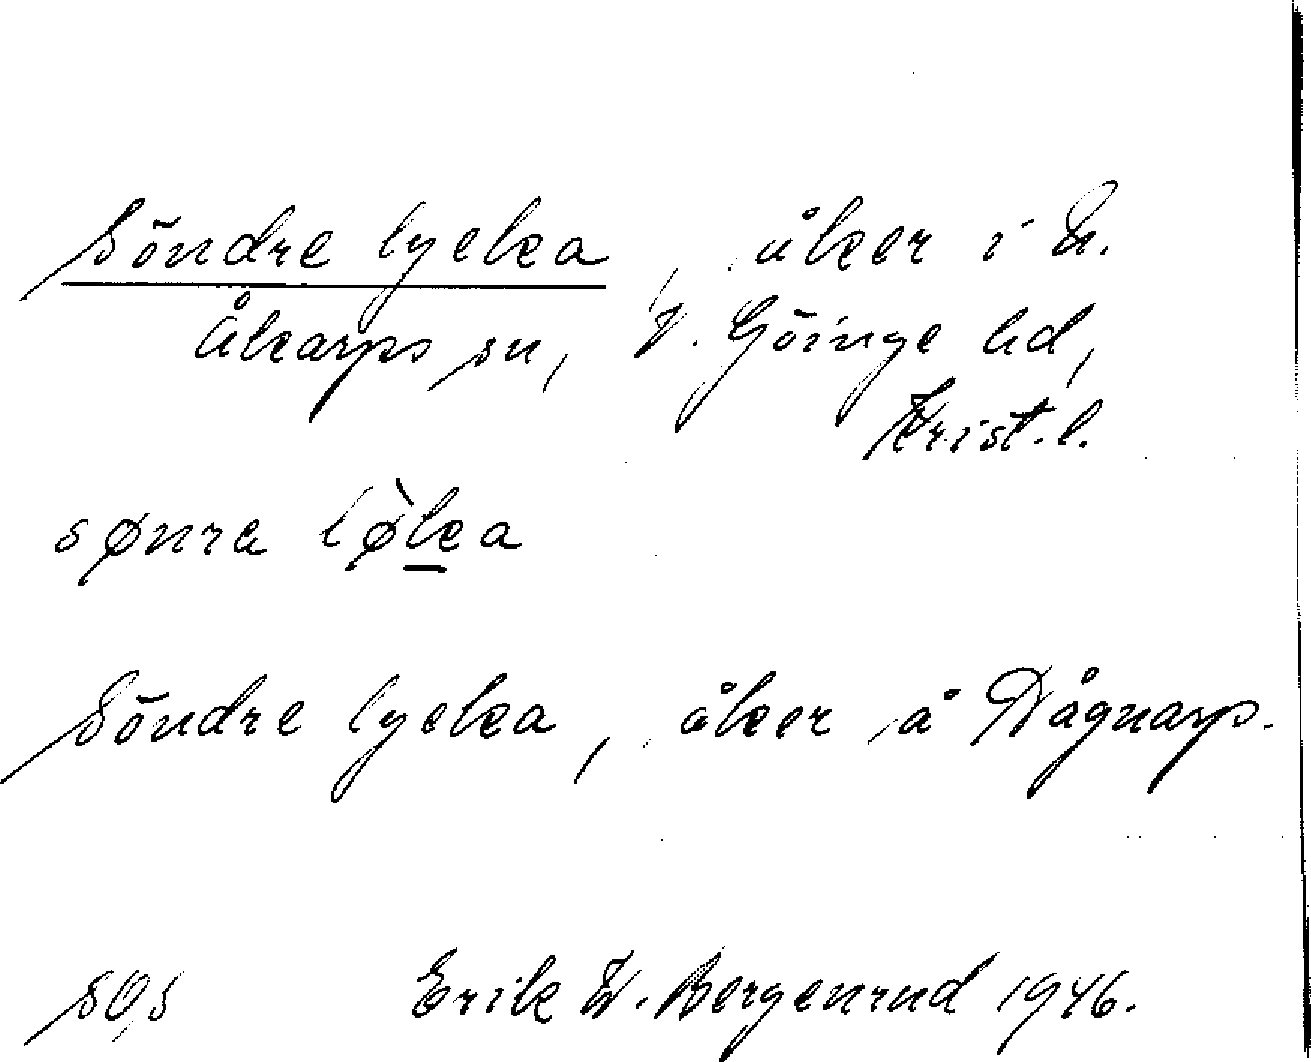 Söndre lycka, åker i N.
Åkarps sn, V. Göinge hd,
Krist.l.
sønra lø̀ka
Söndre lycka, åker å Dågnarp.
Erik W. Bergenrud 1946.